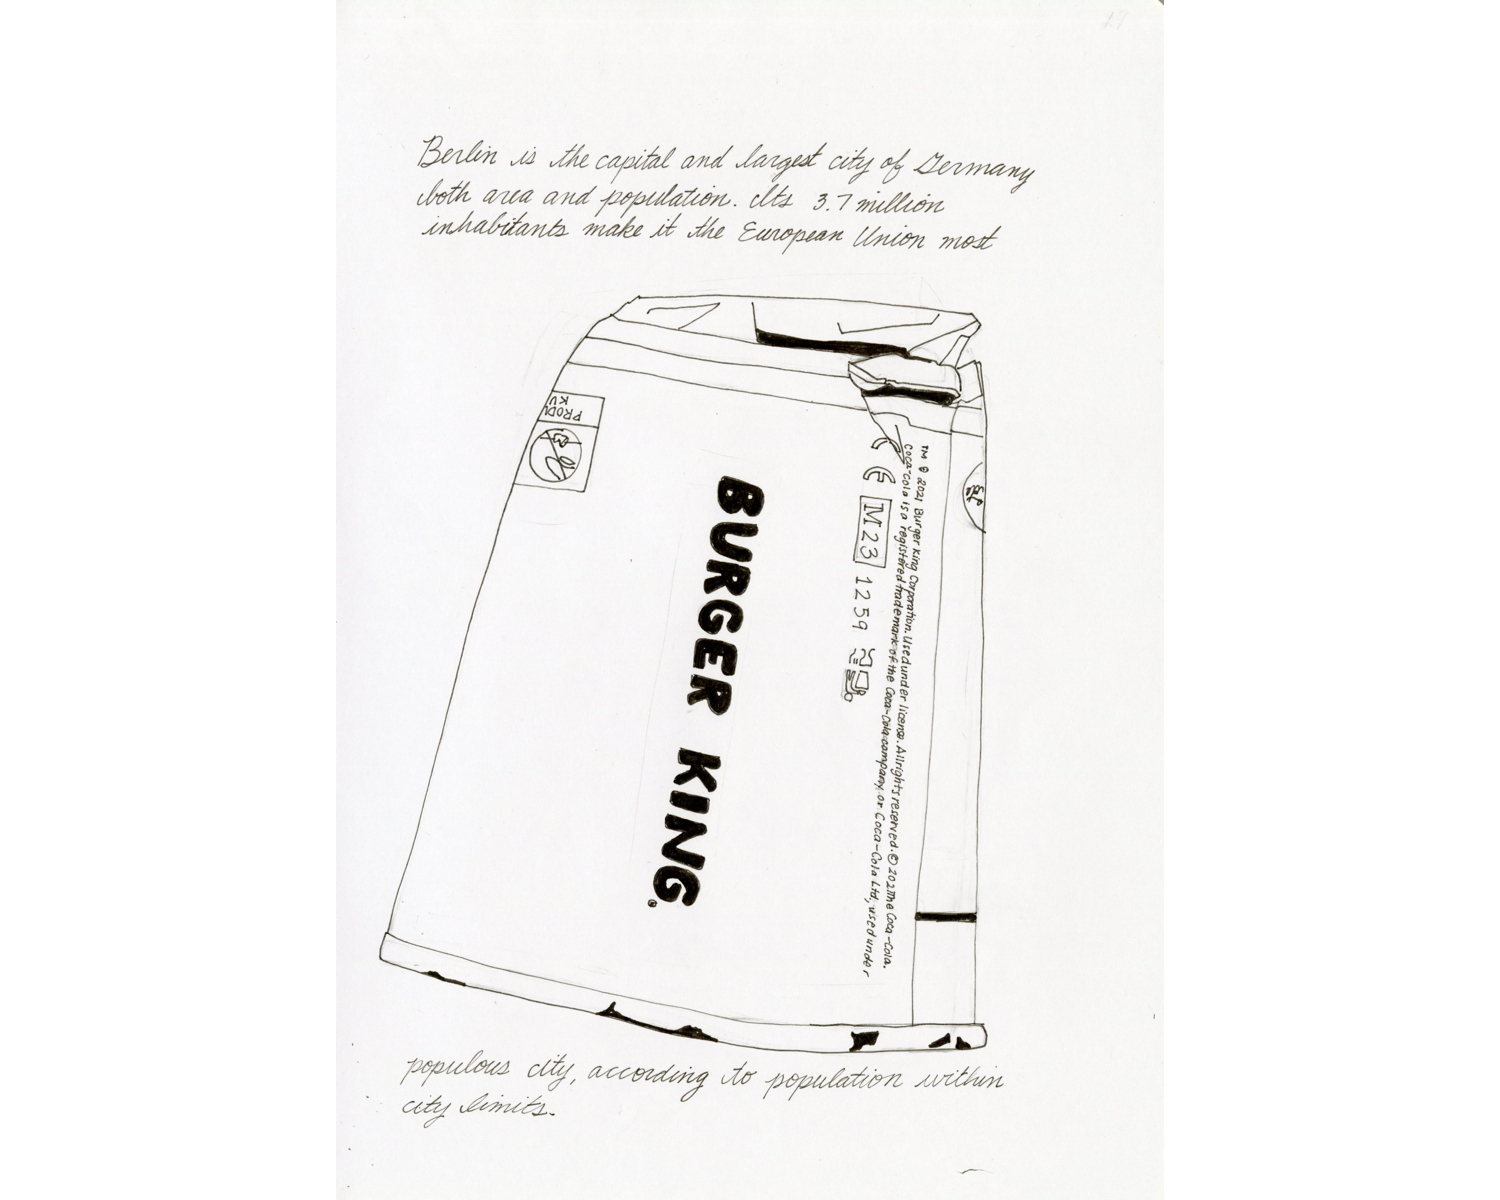 Berlin is the capital and largest city of Germany
both area and population. Its 3.7 million
inhabitants make it the European Union most
PRODU
KU
BURGER KING®
CE M23 1259
TM & 2021 Burger King Corporation. Used under license. All rights reserved. © 2021 The Coca-Cola.
Coca-cola is a registered trademark of the Coca-Cola company, or Coca-Cola Ltd, used under
populous city, according to population within
city limits.